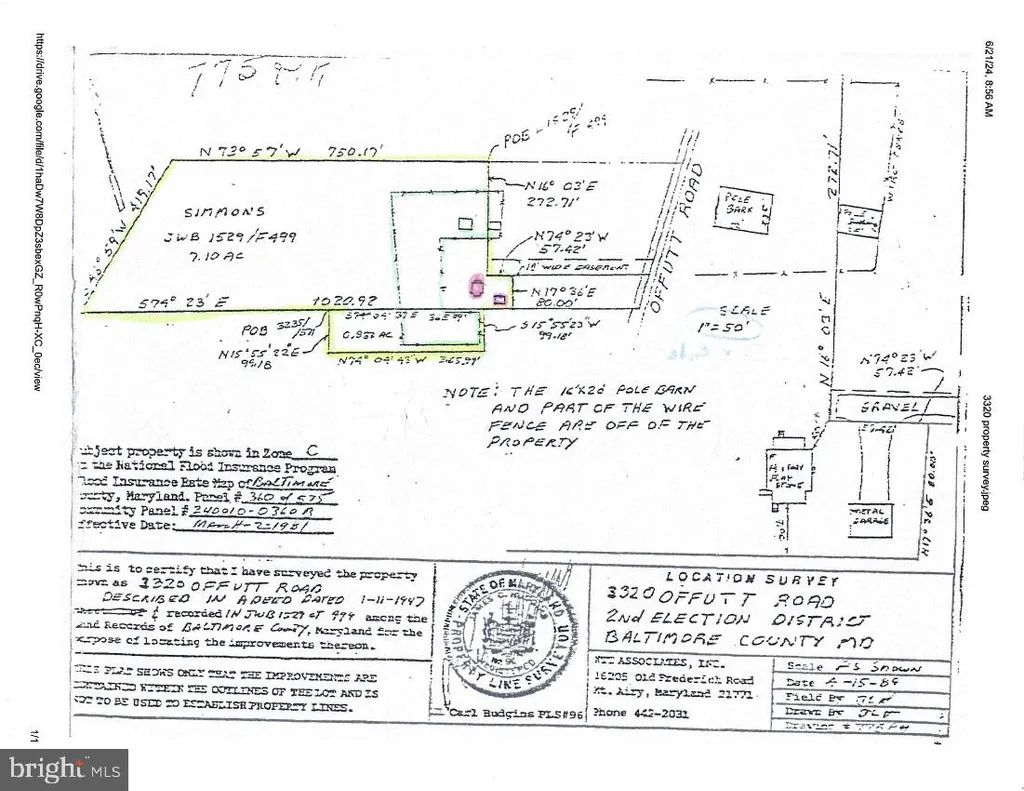 6/21/24, 8:56 AM
3320 property survey.jpeg
https://drive.google.com/file/d/1haDw7W8DpZ3sbexGZ_R0wPnqH-XC_0ec/view
1/1
775
POB
N 73° 57' W 750.17'
N16° 03' E
272.71'
SIMMONS
JWB 1529/F499
7.10 AC
N74° 23' W
57.42'
18' WIDE EASEMENT
N17° 36' E
80.00'
S74° 23' E 1020.92
POB 3235/
0.832 AC
S15°55'23"W
99.18'
N15°55'22"E
99.18
N74° 04' 43" W 365.99'
OFFUTT ROAD
POLE
BARN
272.71'
WIRE FENCE
SCALE
1"=50'
N 16° 03' E
N74° 23' W
57.42'
GRAVEL
57.42
METAL
GARAGE
NOTE: THE 16'X20' POLE BARN
AND PART OF THE WIRE
FENCE ARE OFF OF THE
PROPERTY
bject property is shown in Zone C
the National Flood Insurance Program
lood Insurance Rate Map of BALTIMORE
ounty, Maryland. Panel # 360 of 575
ommunity Panel # 240010-0360 B
ffective Date: March-2-1981
his is to certify that I have surveyed the property
nown as 3320 OFFUTT ROAD
DESCRIBED IN A DEED DATED 1-11-1947
& recorded IN JWB 1529 at 499 among the
and Records of BALTIMORE County, Maryland for the
urpose of locating the improvements thereon.
THIS PLAT SHOWS ONLY THAT THE IMPROVEMENTS ARE
CONTAINED WITHIN THE OUTLINES OF THE LOT AND IS
NOT TO BE USED TO ESTABLISH PROPERTY LINES.
STATE OF MARYLAND
PROPERTY LINE SURVEYOR
Carl Hudgins PLS#96
LOCATION SURVEY
3320 OFFUTT ROAD
2ND ELECTION DISTRICT
BALTIMORE COUNTY MD
NTT ASSOCIATES, INC.
16205 Old Frederick Road
Mt. Airy, Maryland 21771
Phone 442-2031
Scale AS SHOWN
Date 4-15-89
Field By JLF
Drawn By JLF
bright MLS